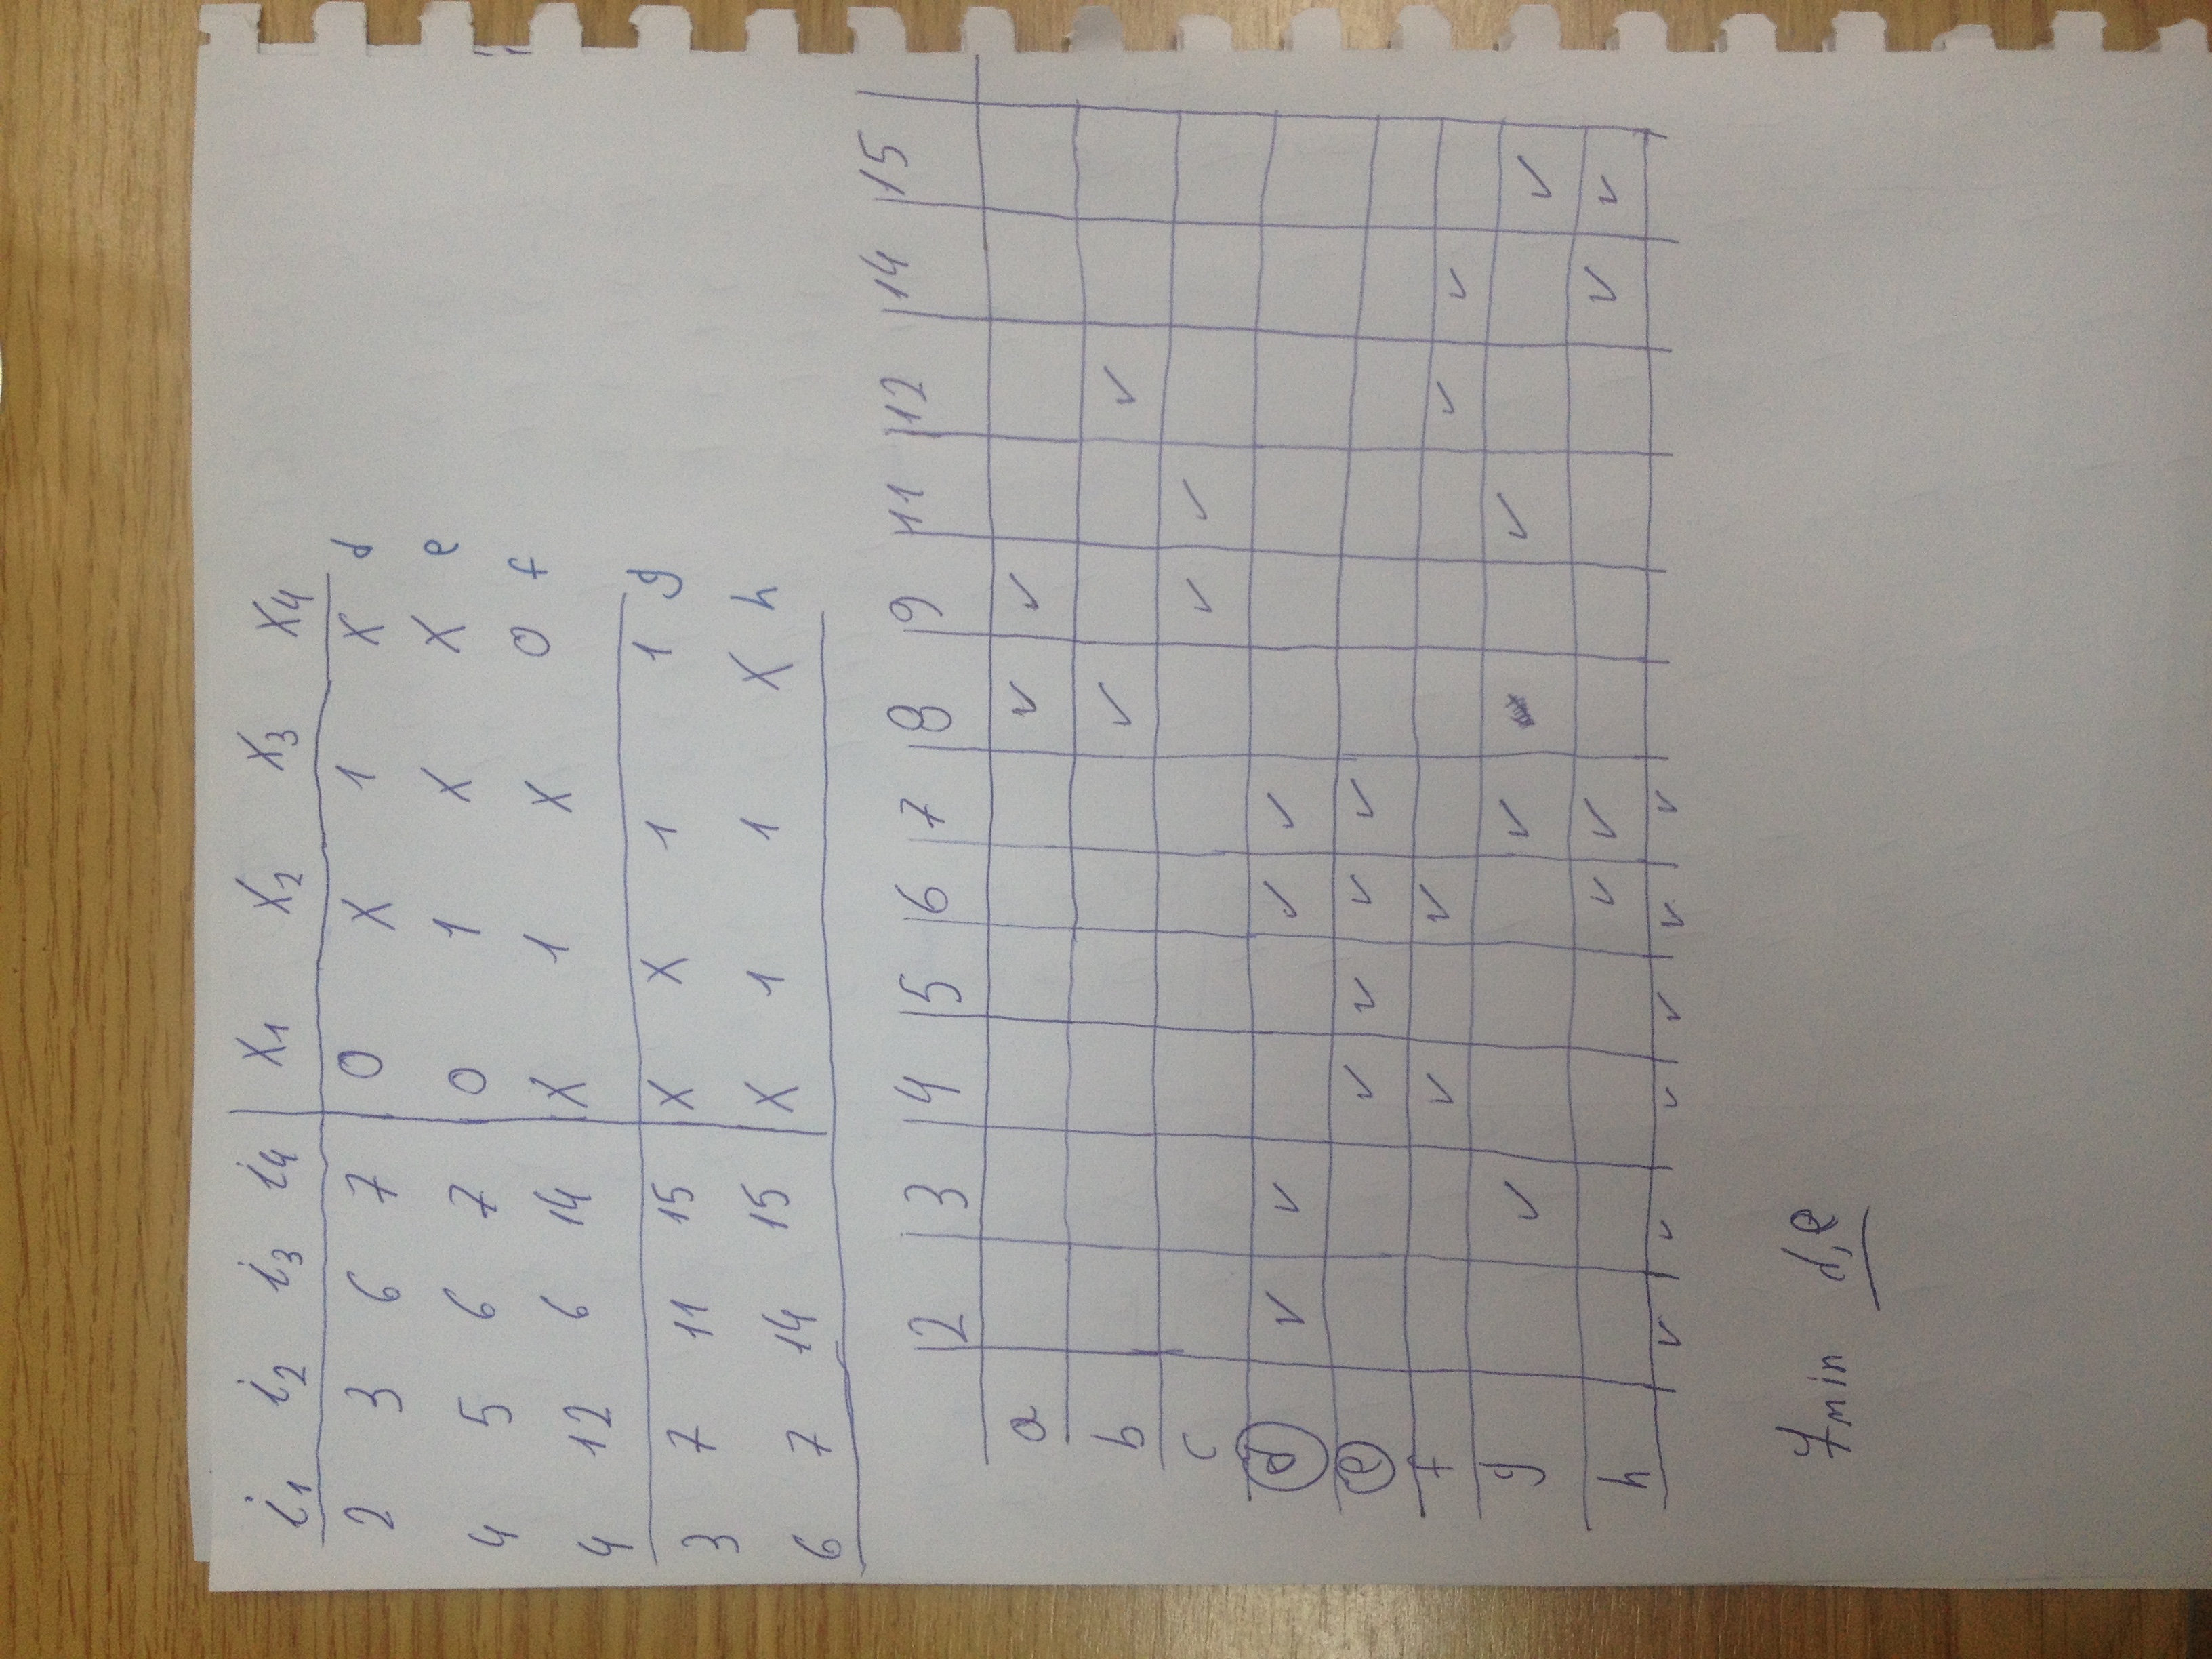 i1 i2 i3 i4 x1 x2 x3 x4
2 3 6 7 0 X 1 X d
4 5 6 7 0 1 X X e
4 12 6 14 X 1 X 0 f
3 7 11 15 X X 1 1 g
6 7 14 15 X 1 1 X h
2 3 4 5 6 7 8 9 11 12 14 15
a ✓ ✓
b ✓ ✓
c ✓ ✓
d ✓ ✓ ✓ ✓
e ✓ ✓ ✓ ✓
f ✓ ✓ ✓ ✓
g ✓ ✓ ✓ ✓
h ✓ ✓ ✓ ✓
✓ ✓ ✓ ✓ ✓ ✓
min d, e